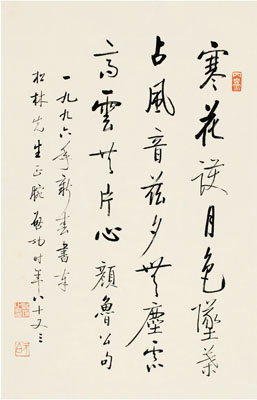 寒花護月色墜葉
占風音茲夕無塵慮
高雲共片心顏魯公句
一九九六年新春書奉
松林先生正腕啟功時年八十又三